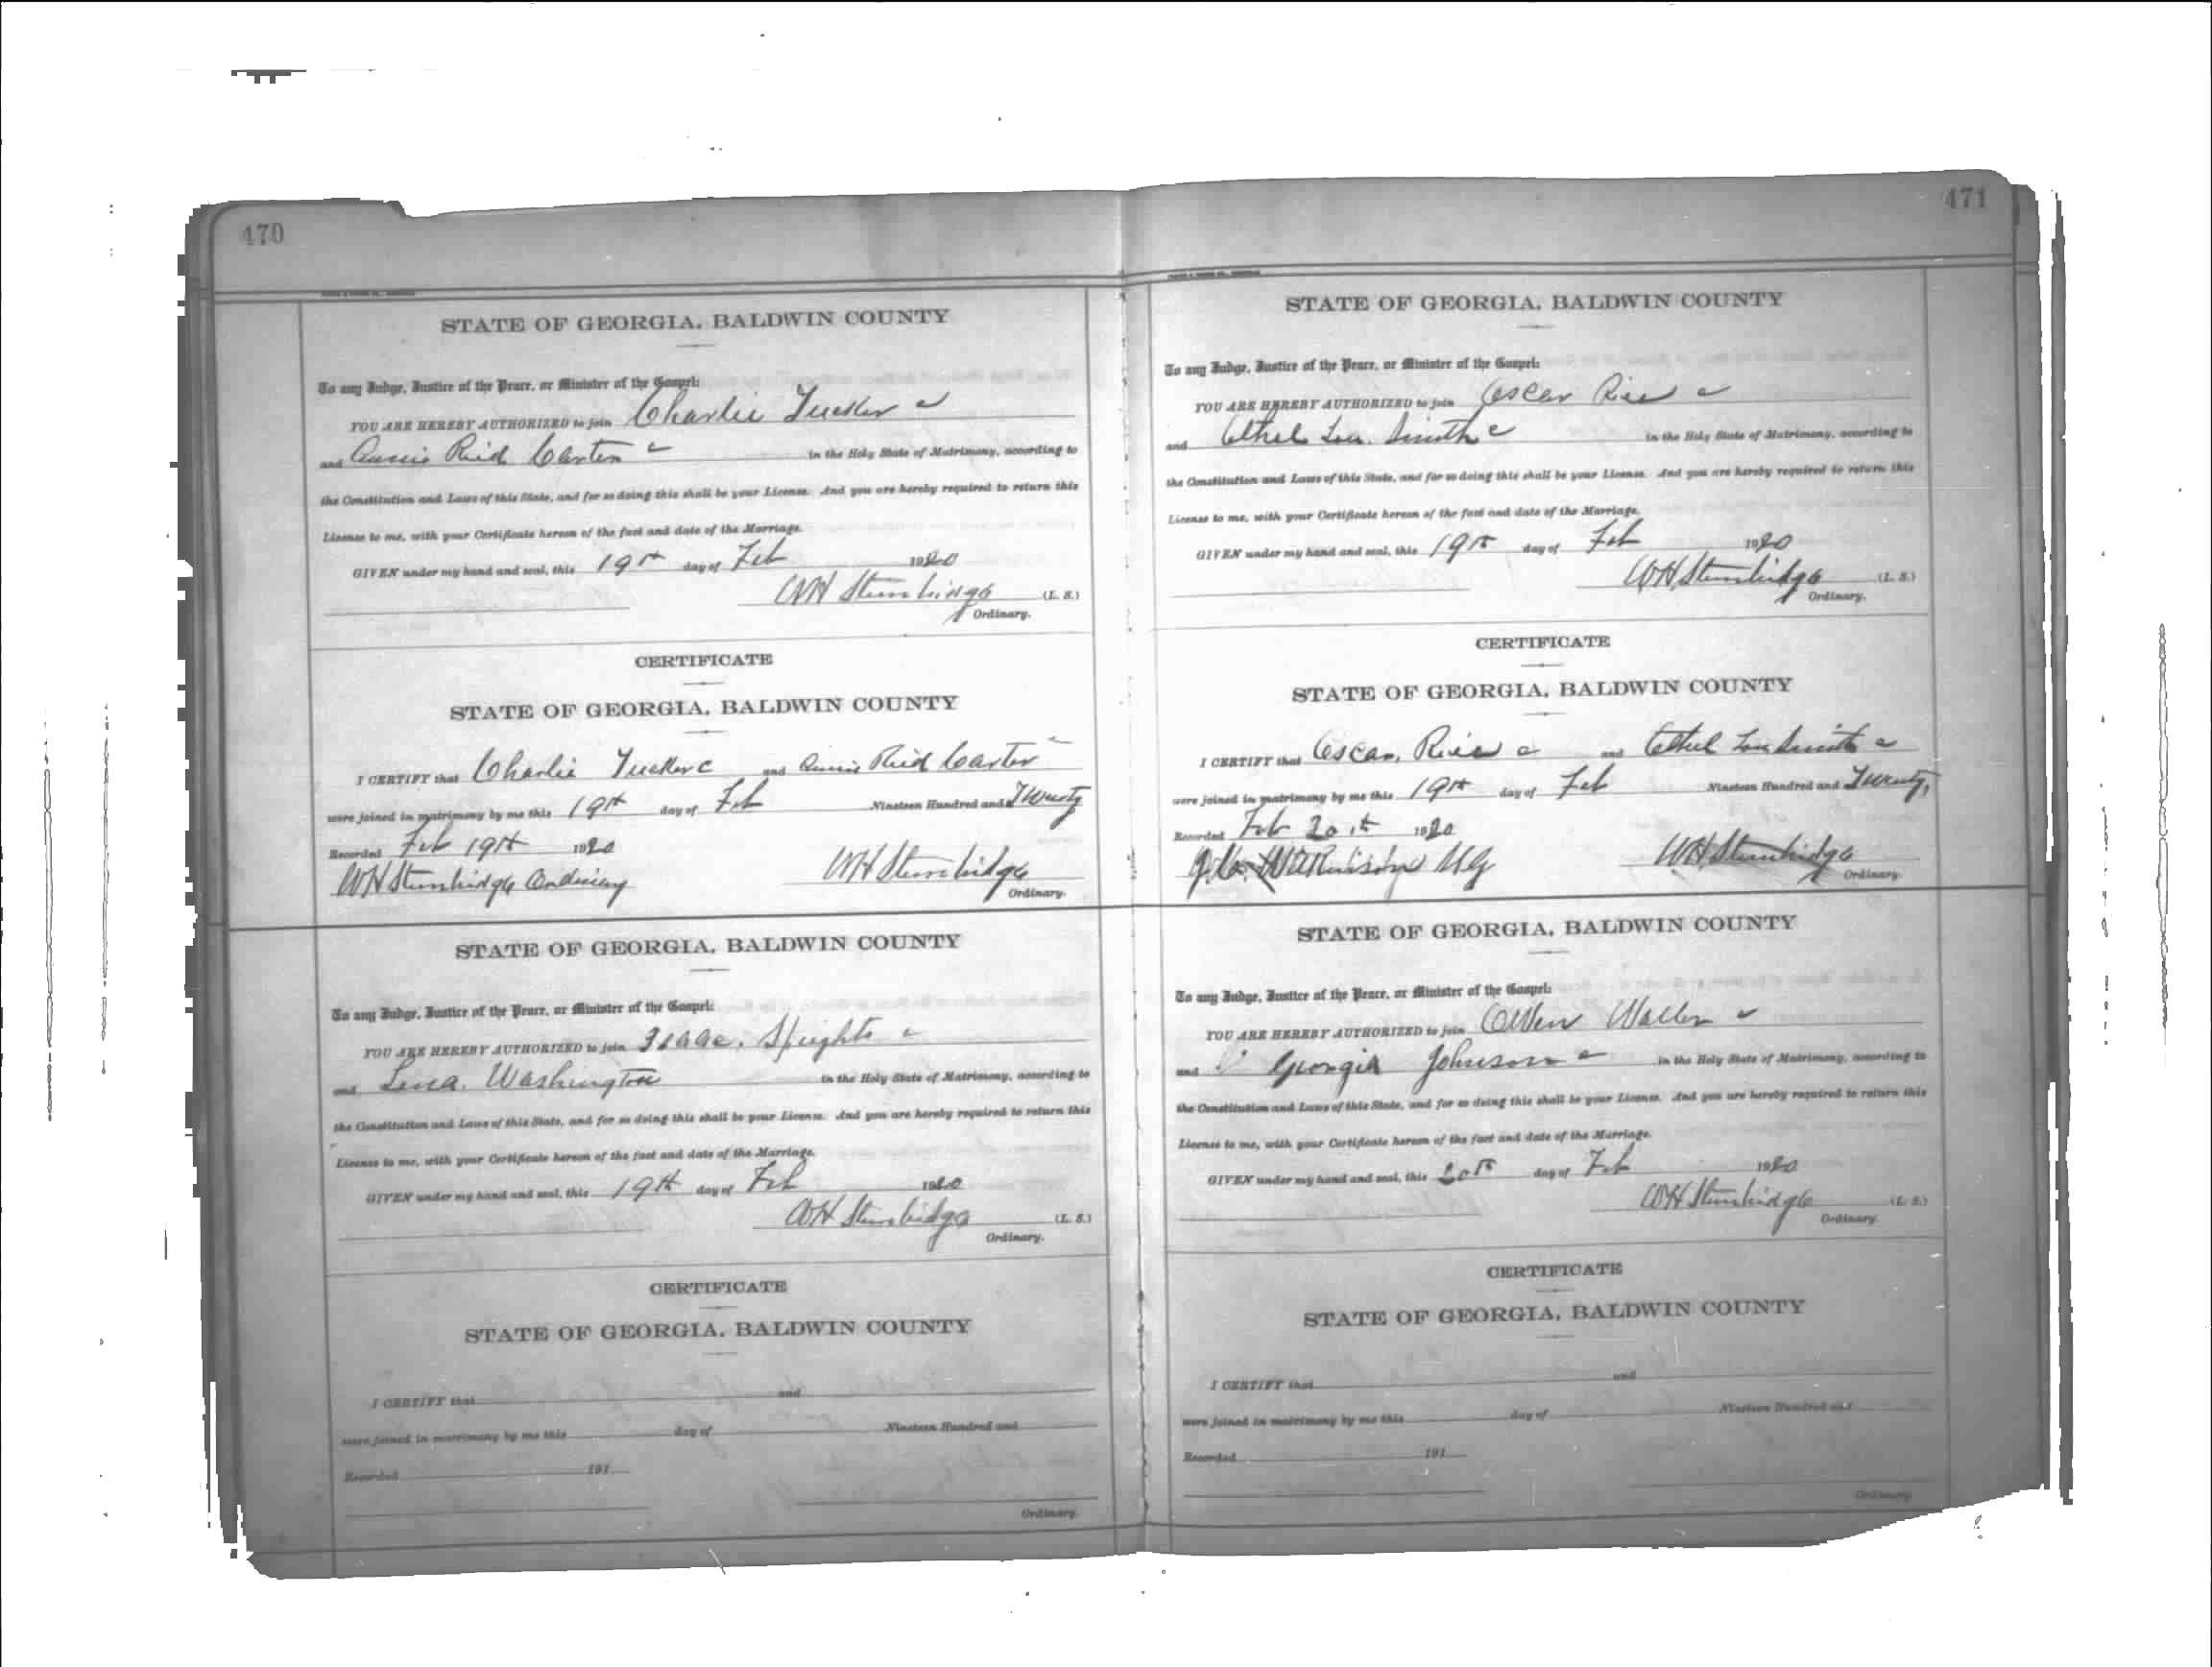 470
STATE OF GEORGIA, BALDWIN COUNTY
To any Judge, Justice of the Peace, or Minister of the Gospel:
YOU ARE HEREBY AUTHORIZED to join Charlie Tucker c
and Annie Reid Carter c in the Holy State of Matrimony, according to
the Constitution and Laws of this State, and for so doing this shall be your License. And you are hereby required to return this
License to me, with your Certificate hereon of the fact and date of the Marriage.
GIVEN under my hand and seal, this 19th day of Feb 1920
WH Stembridge (L. S.)
Ordinary.
CERTIFICATE
STATE OF GEORGIA, BALDWIN COUNTY
I CERTIFY that Charlie Tucker c and Annie Reid Carter c
were joined in matrimony by me this 19th day of Feb Nineteen Hundred and Twenty
Recorded Feb 19th 1920
WH Stembridge Ordinary WH Stembridge
Ordinary.
STATE OF GEORGIA, BALDWIN COUNTY
To any Judge, Justice of the Peace, or Minister of the Gospel:
YOU ARE HEREBY AUTHORIZED to join Isaac Speights c
and Lena Washington in the Holy State of Matrimony, according to
the Constitution and Laws of this State, and for so doing this shall be your License. And you are hereby required to return this
License to me, with your Certificate hereon of the fact and date of the Marriage.
GIVEN under my hand and seal, this 19th day of Feb 1920
WH Stembridge (L. S.)
Ordinary.
CERTIFICATE
STATE OF GEORGIA, BALDWIN COUNTY
I CERTIFY that and
were joined in matrimony by me this day of Nineteen Hundred and
Recorded 191
Ordinary.
471
STATE OF GEORGIA, BALDWIN COUNTY
To any Judge, Justice of the Peace, or Minister of the Gospel:
YOU ARE HEREBY AUTHORIZED to join Oscar Rice c
and Ethel Lou Smith c in the Holy State of Matrimony, according to
the Constitution and Laws of this State, and for so doing this shall be your License. And you are hereby required to return this
License to me, with your Certificate hereon of the fact and date of the Marriage.
GIVEN under my hand and seal, this 19th day of Feb 1920
WH Stembridge (L. S.)
Ordinary.
CERTIFICATE
STATE OF GEORGIA, BALDWIN COUNTY
I CERTIFY that Oscar Rice c and Ethel Lou Smith c
were joined in matrimony by me this 19th day of Feb Nineteen Hundred and Twenty,
Recorded Feb 20th 1920
Wilkinson MG WH Stembridge
Ordinary.
STATE OF GEORGIA, BALDWIN COUNTY
To any Judge, Justice of the Peace, or Minister of the Gospel:
YOU ARE HEREBY AUTHORIZED to join Owen Waller c
and Georgia Johnson c in the Holy State of Matrimony, according to
the Constitution and Laws of this State, and for so doing this shall be your License. And you are hereby required to return this
License to me, with your Certificate hereon of the fact and date of the Marriage.
GIVEN under my hand and seal, this 20th day of Feb 1920
WH Stembridge (L. S.)
Ordinary.
CERTIFICATE
STATE OF GEORGIA, BALDWIN COUNTY
I CERTIFY that and
were joined in matrimony by me this day of Nineteen Hundred and
Recorded 191
Ordinary.